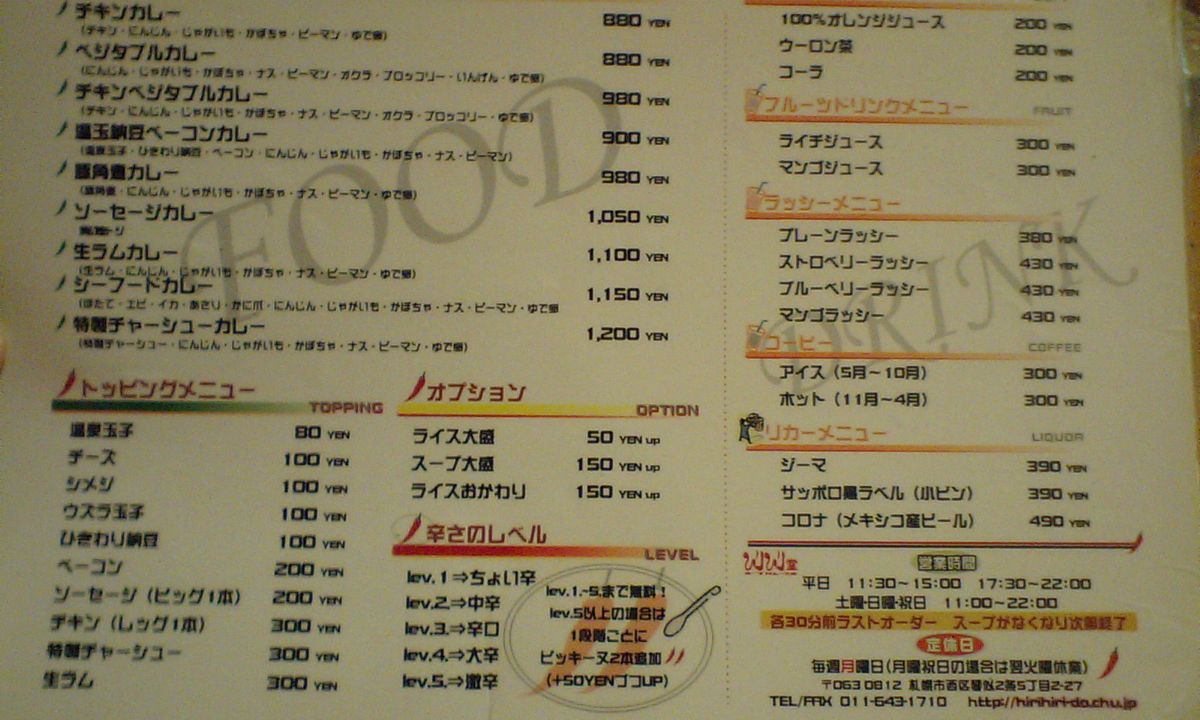 チキンカレー 880 YEN
(チキン・にんじん・じゃがいも・かぼちゃ・ピーマン・ゆで卵)
ベジタブルカレー 880 YEN
(にんじん・じゃがいも・かぼちゃ・ナス・ピーマン・オクラ・ブロッコリー・いんげん・ゆで卵)
チキンベジタブルカレー 980 YEN
(チキン・にんじん・じゃがいも・かぼちゃ・ナス・ピーマン・オクラ・ブロッコリー・ゆで卵)
温玉納豆ベーコンカレー 900 YEN
(温泉玉子・ひきわり納豆・ベーコン・にんじん・じゃがいも・かぼちゃ・ナス・ピーマン)
豚角煮カレー 980 YEN
(豚角煮・にんじん・じゃがいも・かぼちゃ・ナス・ピーマン・ゆで卵)
ソーセージカレー 1,050 YEN
生ラムカレー 1,100 YEN
(生ラム・にんじん・じゃがいも・かぼちゃ・ナス・ピーマン・ゆで卵)
シーフードカレー 1,150 YEN
(ほたて・エビ・イカ・あさり・かに爪・にんじん・じゃがいも・かぼちゃ・ナス・ピーマン・ゆで卵
特製チャーシューカレー 1,200 YEN
(特製チャーシュー・にんじん・じゃがいも・かぼちゃ・ナス・ピーマン・ゆで卵)
FOOD
トッピングメニュー
TOPPING
温泉玉子 80 YEN
チーズ 100 YEN
シメジ 100 YEN
ウズラ玉子 100 YEN
ひきわり納豆 100 YEN
ベーコン 200 YEN
ソーセージ(ビッグ1本) 200 YEN
チキン(レッグ1本) 300 YEN
特製チャーシュー 300 YEN
生ラム 300 YEN
オプション
OPTION
ライス大盛 50 YEN up
スープ大盛 150 YEN up
ライスおかわり 150 YEN up
辛さのレベル
LEVEL
lev.1⇒ちょい辛
lev.2.⇒中辛
lev.3.⇒辛口
lev.4.⇒大辛
lev.5.⇒激辛
lev.1.~5.まで無料!
lev.5以上の場合は
1段階ごとに
ピッキーヌ2本追加
(+50YENづつUP)
100%オレンジジュース 200 YEN
ウーロン茶 200 YEN
コーラ 200 YEN
フルーツドリンクメニュー FRUIT
ライチジュース 300 YEN
マンゴジュース 300 YEN
ラッシーメニュー
プレーンラッシー 380 YEN
ストロベリーラッシー 430 YEN
ブルーベリーラッシー 430 YEN
マンゴラッシー 430 YEN
DRINK
コーヒー COFFEE
アイス(5月~10月) 300 YEN
ホット(11月~4月) 300 YEN
リカーメニュー LIQUOR
ジーマ 390 YEN
サッポロ黒ラベル(小ビン) 390 YEN
コロナ(メキシコ産ビール) 490 YEN
営業時間
平日 11:30~15:00 17:30~22:00
土曜・日曜・祝日 11:00~22:00
各30分前ラストオーダー スープがなくなり次第終了
定休日
毎週月曜日(月曜祝日の場合は翌火曜休業)
〒063 0812 札幌市西区琴似2条5丁目2-27
TEL/FAX 011-643-1710 http://hirihiri-do.chu.jp